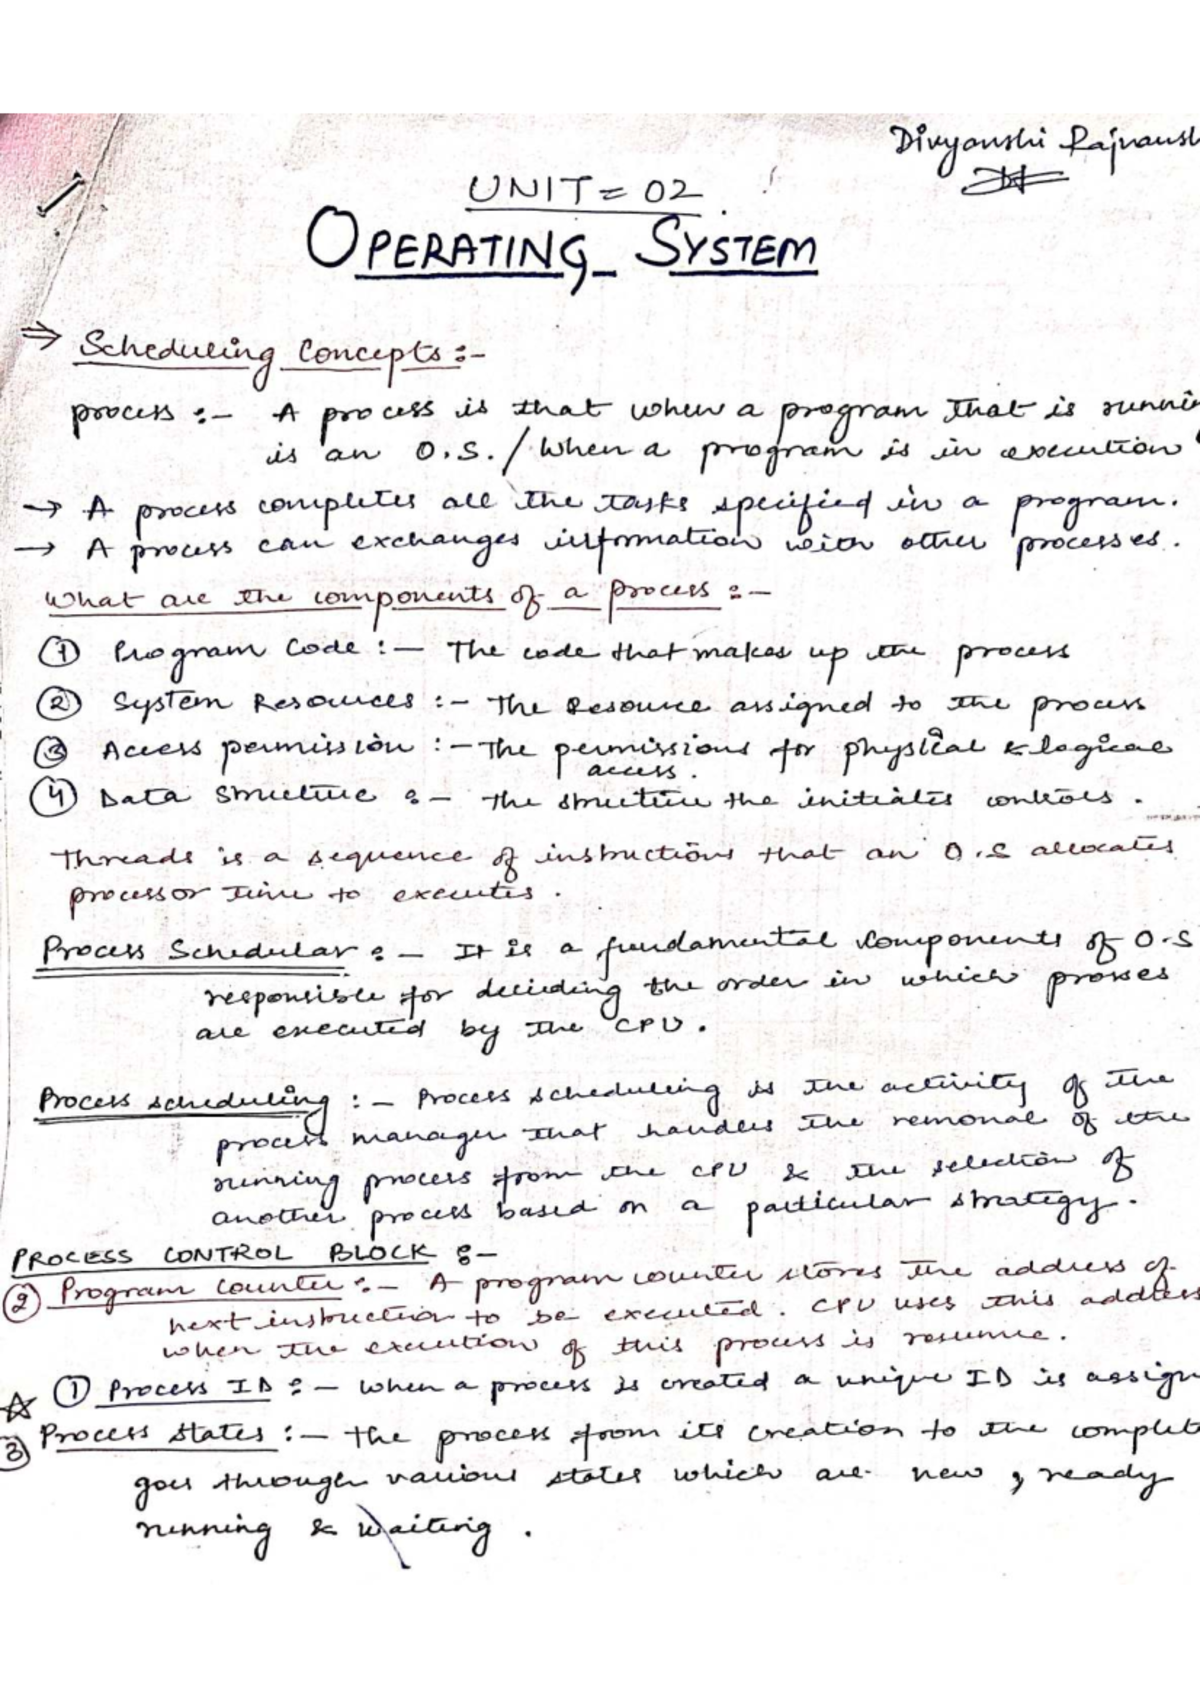 Divyanshi Rajvansh
UNIT = 02
OPERATING SYSTEM
⇒ Scheduling Concepts :-
process :- A process is that when a program that is runnin
is an O.S. / When a program is in execution
→ A process completes all the tasks specified in a program.
→ A process can exchanges information with other processes.
What are the components of a process :-
① Program Code :- The code that makes up the process
② System Resources :- The Resource assigned to the process
③ Access permission :- The permissions for physical & logical
access.
④ Data Structure :- the structure the initiates controls.
Threads is a sequence of instructions that an O.S allocates
processor time to executes.
Process Schedular :- It is a fundamental components of O.S
responsible for deciding the order in which prosses
are executed by the CPU.
Process scheduling :- Process scheduling is the activity of the
process manager that handles the removal of the
running process from the CPU & the selection of
another process based on a particular strategy.
PROCESS CONTROL BLOCK :-
② Program Counter :- A program counter stores the address of
next instruction to be executed. CPU uses this address
when the execution of this process is resume.
☆ ① Process ID :- When a process is created a unique ID is assign
③ Process States :- the process from its creation to the complet
goes through various states which are new, ready
running & waiting.